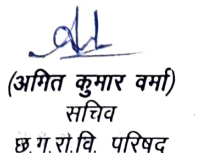 (अमित कुमार वर्मा)
सचिव
छ.ग.रो.वि. परिषद